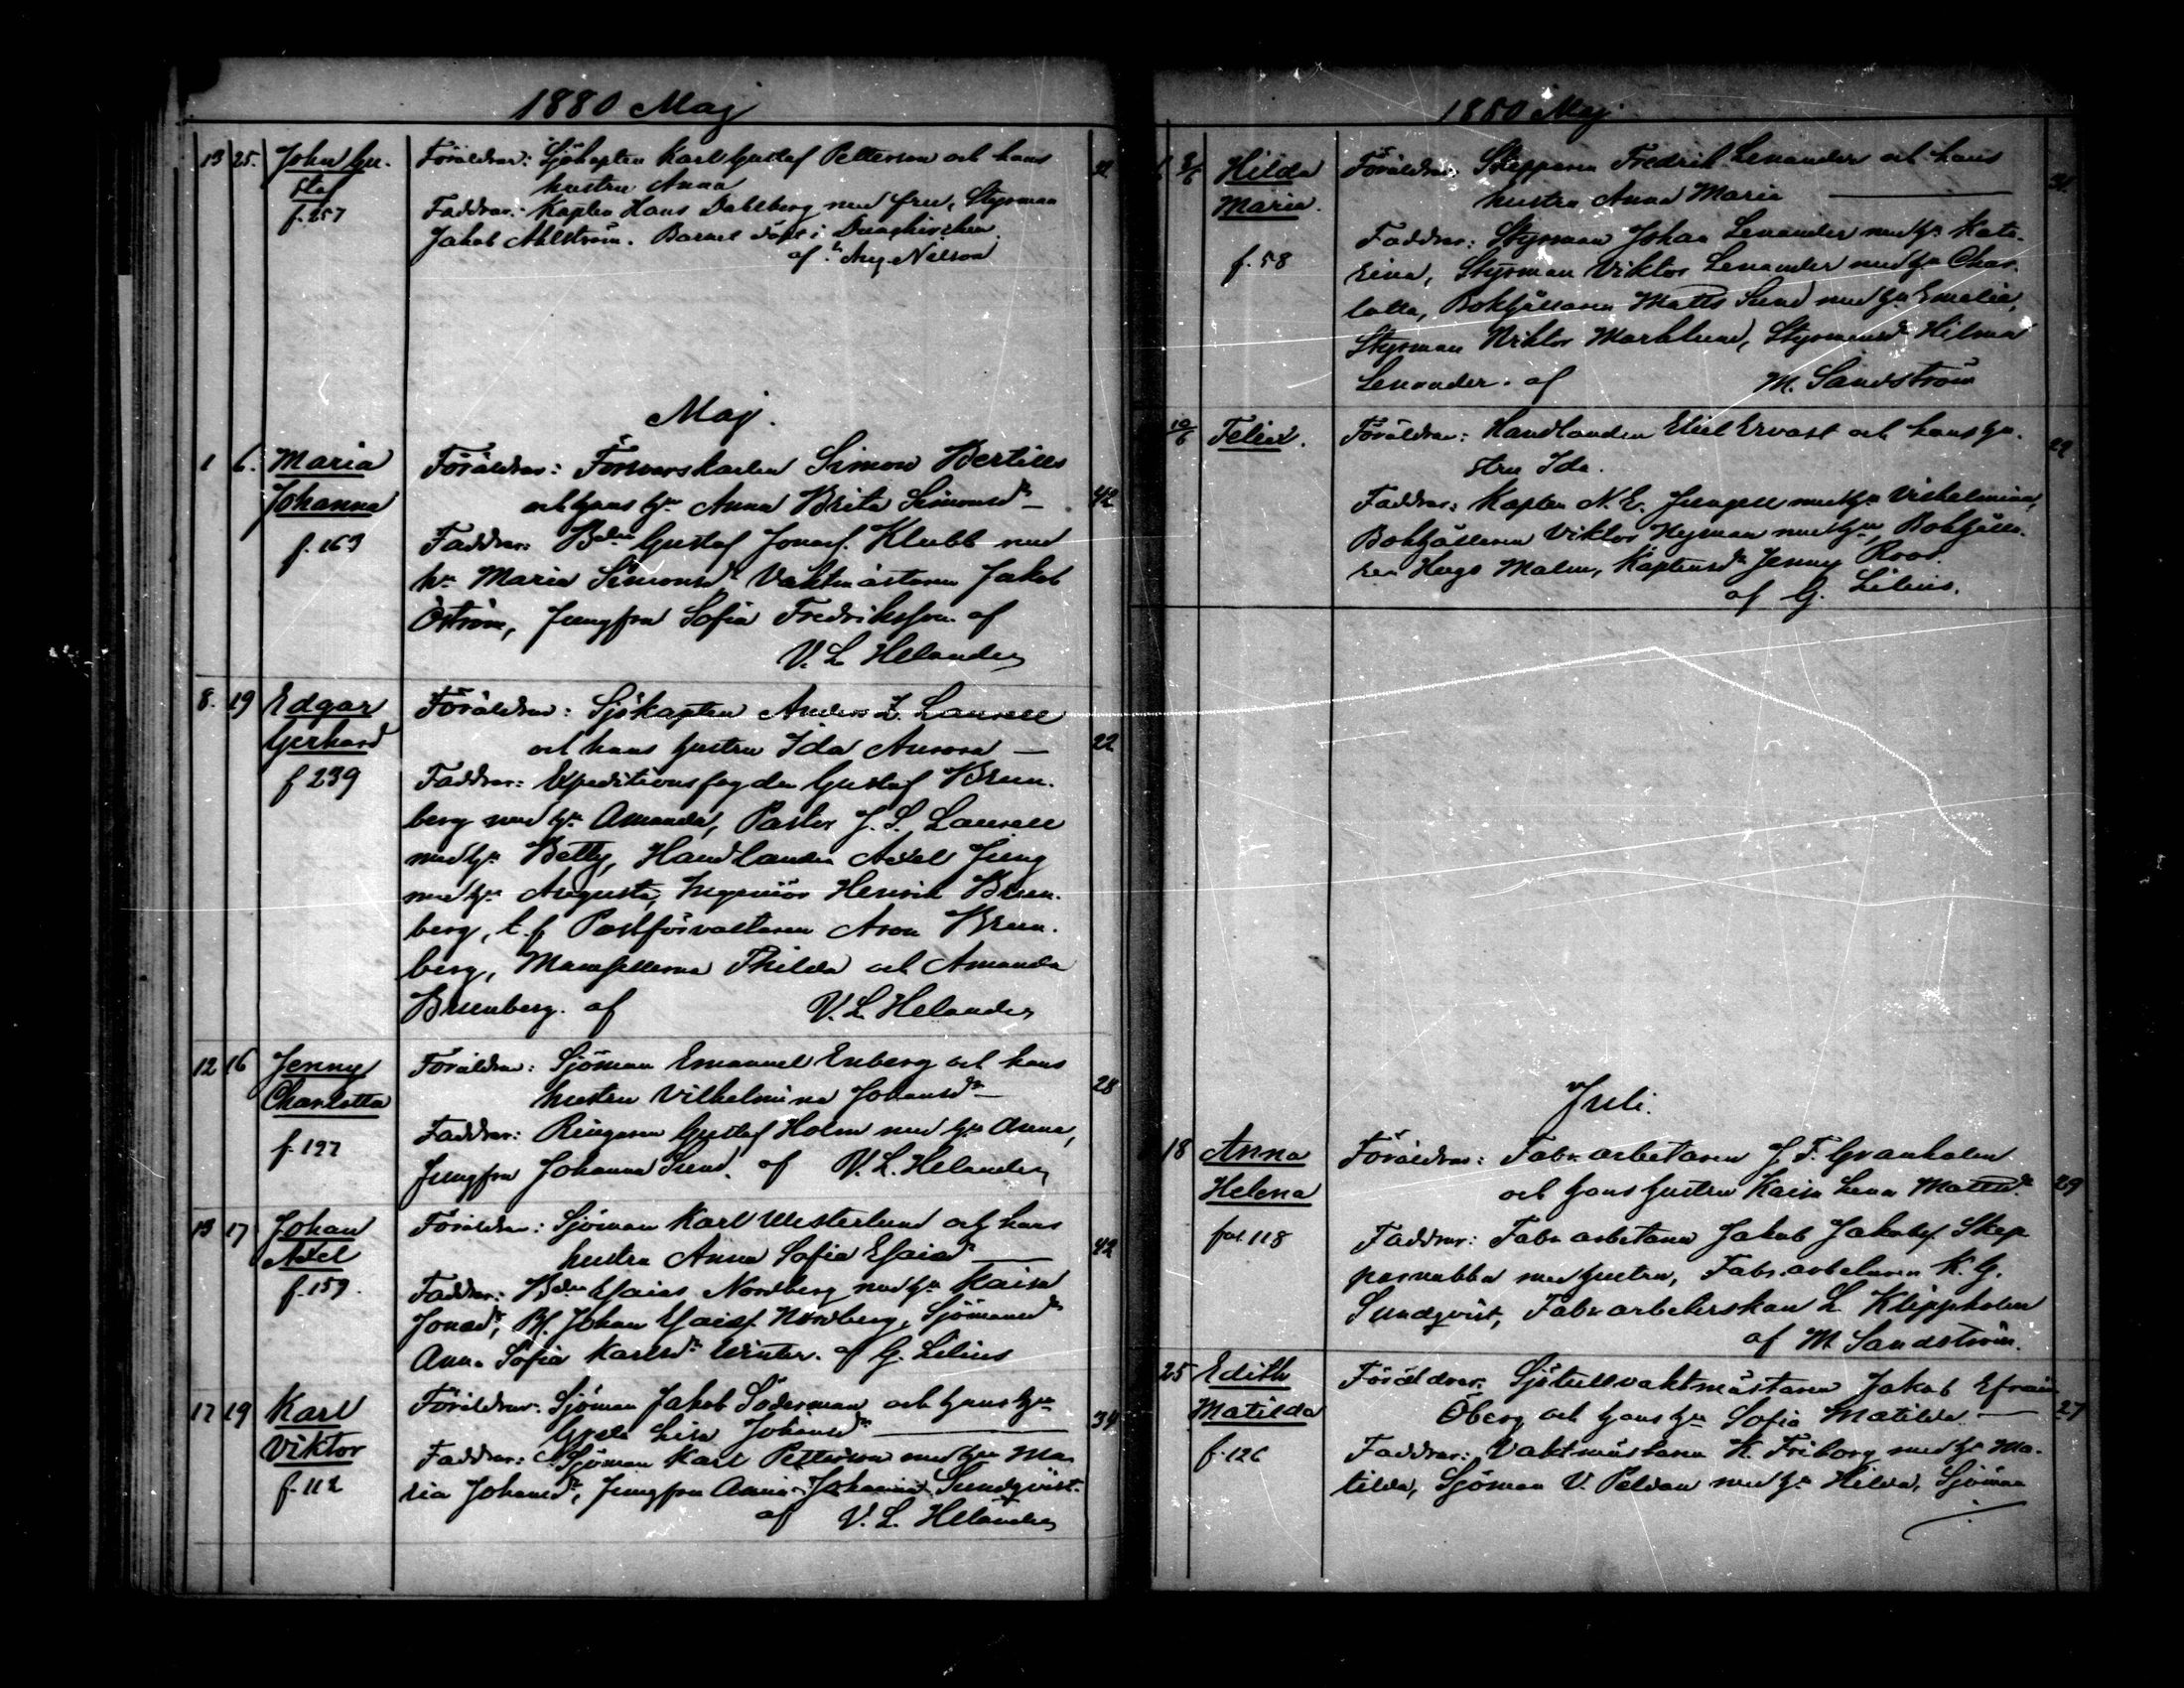 1880 Maj
13 25. John Gu- Föräldrar: Sjökapten Karl Gustaf Petterson och hans
staf hustru Anna
f. 257 Faddrar: Kapten Hans Dahlberg med fru, Styrman
Jakob Ahlström. Barnet döpt i
af Aug. Nilson
Maj.
1 6. Maria Föräldrar: Försvarskarlen Simon Bertills
Johanna och hans h:u Anna Brita Simonsd:r 42
f. 163 Faddrar: Gustaf Jonas. Klubb med
h:u Maria Simonsd:r Vaktmästaren Jakob
Öström, Jungfru Sofia Fredriksson af
V. L. Helander
8. 19 Edgar Föräldrar: Sjökapten Anders L. Laurell
Gerhard och hans hustru Ida Aurora 22
f 239 Faddrar: Expeditionsfogden Gustaf Brun-
berg med h:u Amanda, Pastor J. S. Laurell
med h:u Betty, Handlanden Axel Jung
med h:u Augusta, Ingeniör Henrik Brun-
berg, t.f. Postförvaltaren Aron Brun-
berg, Mamsellerna Thilda och Amanda
Brunberg. af V. L. Helander
12 16 Jenny Föräldrar: Sjöman Emanuel Enberg och hans
Charlotta hustru Vilhelmina Johansd:r 28
f. 197 Faddrar: Ringaren Gustaf Holm med h:u Anna,
Jungfru Johanna Sund. af V. L. Helander
13 17 Johan Föräldrar: Sjöman Karl Westerlund och hans
Axel hustru Anna Sofia Esaiad:r 42
f. 159. Faddrar: Esaias Nordberg med h:u Kaisa
Jonasd:r, Johan Esaias. Nordberg, Sjömansd:r
Anna Sofia Karlsd:r Winter. af G. Lilius
17 19 Karl Föräldrar: Sjöman Jakob Söderman och hans h:u
Viktor Greta Lisa Johansd:r 34
f. 112 Faddrar: Sjöman Karl Petterson med h:u Ma-
ria Johansd:r, Jungfru Anna Johanna Sundqvist.
af V. L. Helander
1880 Maj
2/6 Hilda Föräldrar: Skepparen Fredrik Lenander och hans
Maria. hustru Anna Maria
f. 58 Faddrar: Styrman Johan Lenander med h:u Kata-
rina, Styrman Viktor Lenander med h:u Char-
lotta, Bokhållaren Matts Sund med h:u Emelie,
Styrman Viktor Marklund, Styrmansd:r Hilma
Lenander. af M. Sandström
10/6 Felix. Föräldrar: Handlanden Eliel Ervast och hans hu-
stru Ida. 29
Faddrar: Kapten N. E. Jungell med h:u Vilhelmina,
Bokhållaren Viktor Heyman med h:u, Bokhålla-
ren Hugo Malm, Kaptensd:r Jenny Roos.
af G. Lilius.
Juli.
18 Anna Föräldrar: Fabr. arbetaren J. F. Granholm
Helena och hans hustru Kaisa Lena Mattsd:r 29
fol. 118 Faddrar: Fabr. arbetaren Jakob Jakobs. Skep-
parnabba med hustru, Fabr. arbetaren K. G.
Sundqvist, Fabr. arbeterskan L. Klippholm
af M. Sandström.
25 Edith Föräldrar: Sjötullvaktmästaren Jakob Efraim
Matilda Öberg och hans h:u Sofia Matilda 27
f. 126 Faddrar: Vaktmästaren K. Friborg med h:u Ma-
tilda, Sjöman V. Peldan med h:u Hilda, Sjöman